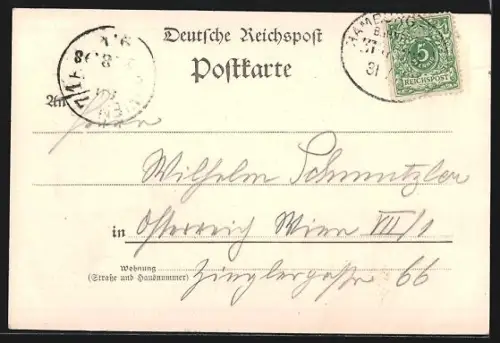 Deutsche Reichspost
Postkarte
HAMBURG
5
REICHSPOST
31
WIEN
8 98
An
Herrn
Wilhelm Schmutzler
in Österreich Wien VII/1
Wohnung
(Straße und Hausnummer)
Zieglergasse 66